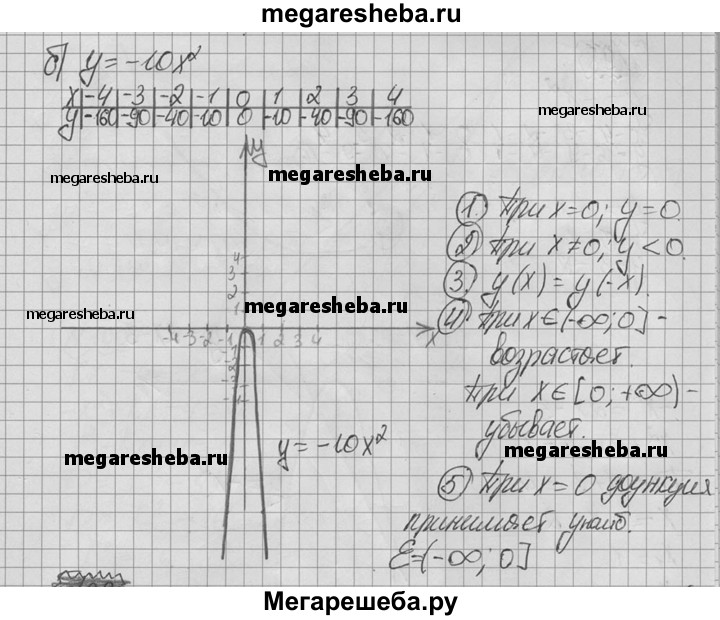 megaresheba.ru
б) y = -10x²
x | -4 | -3 | -2 | -1 | 0 | 1 | 2 | 3 | 4
y | -160 | -90 | -40 | -10 | 0 | -10 | -40 | -90 | -160
megaresheba.ru
megaresheba.ru
megaresheba.ru
y
① При x = 0; y = 0.
② При x ≠ 0; y < 0.
③ y(x) = y(-x).
④ При x ∈ (-∞; 0] -
возрастает.
При x ∈ [0; +∞) -
убывает.
4
3
2
1
megaresheba.ru
megaresheba.ru
-4 -3 -2 -1 1 2 3 4 x
-1
-2
-3
-4
y = -10x²
megaresheba.ru
megaresheba.ru
⑤ При x = 0 функция
принимает унаиб.
E = (-∞; 0]
Мегарешеба.ру